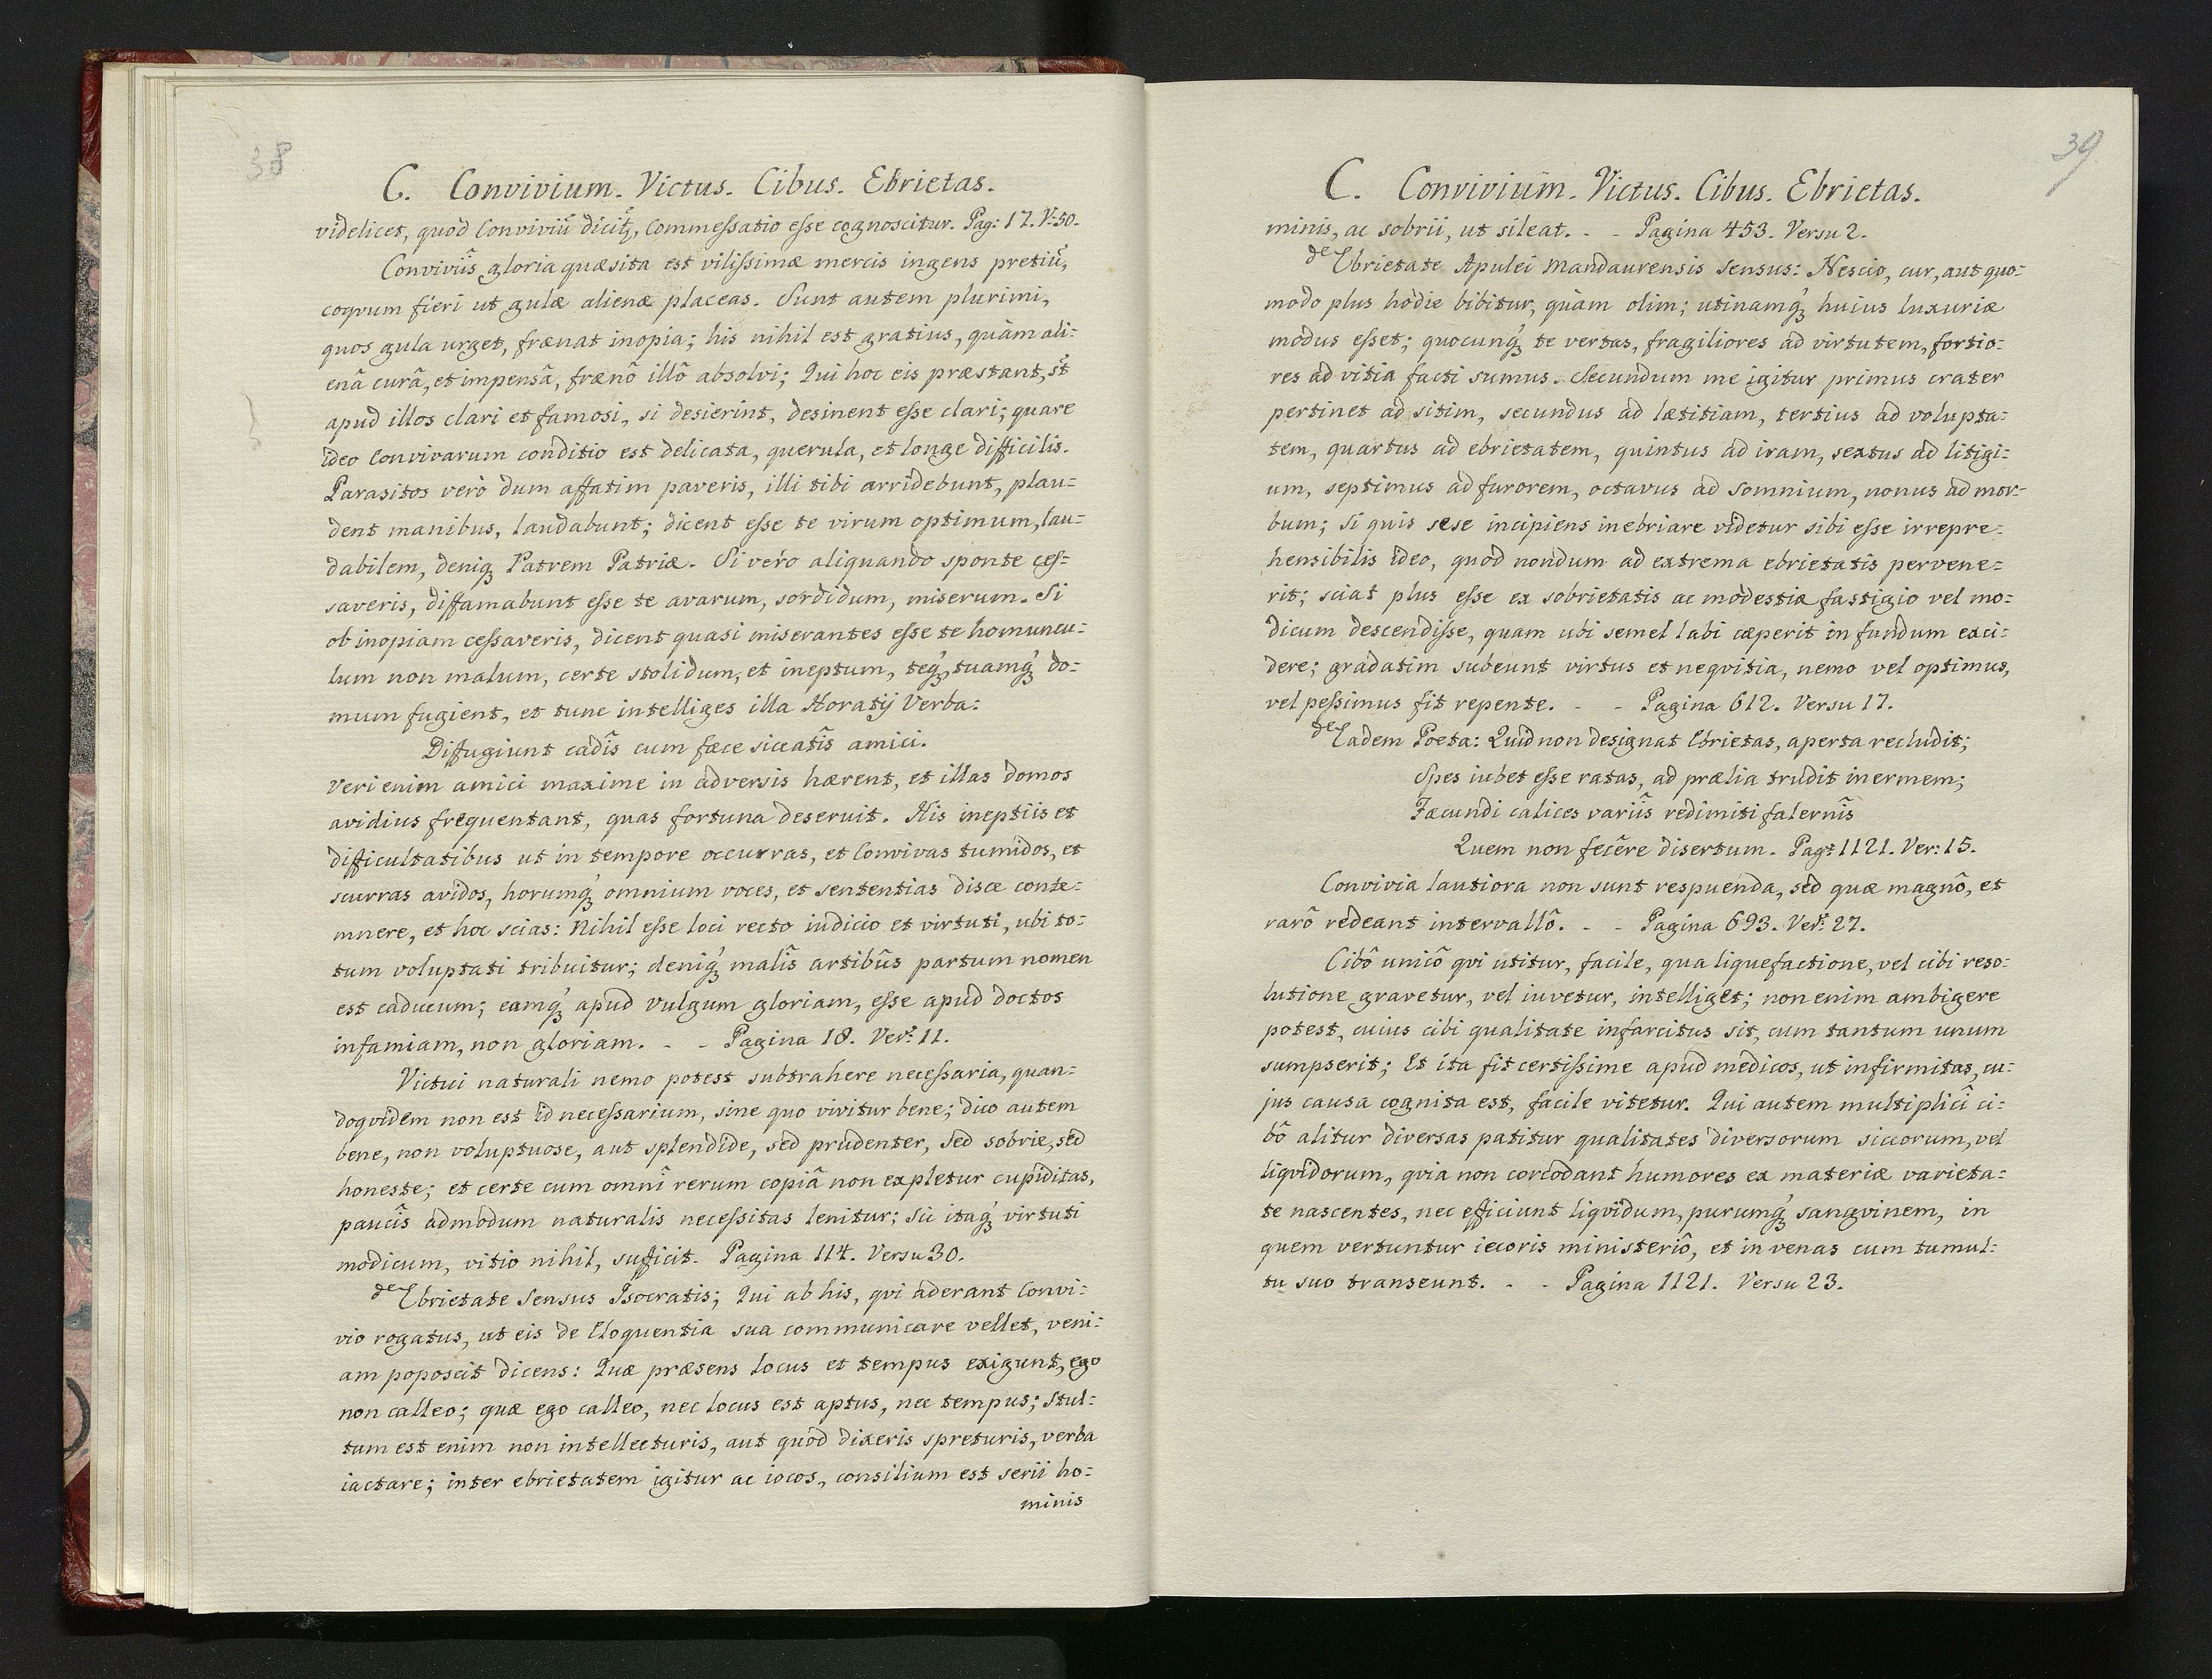 38
C. Convivium. Victus. Cibus. Ebrietas.
videlicet, quod Conviviũ dicitꝫ, Commeſsatio eſse cognoscitur. Pag: 17. V: 50.
Convivĩs gloria quæsita est viliſsimæ mercis ingens pretiũ,
coqvum fieri ut gulæ alienæ placeas. Sunt autem plurimi,
quos gula urget, frænat inopia; his nihil est gratius, quàm ali:
enâ curâ, et impensâ, frænô illô absolvi; Qui hoc eis præstant, s̃t
apud illos clari et famosi, si desierint, desinent eſse clari; quare
ideo Convivarum conditio est delicata, querula, et longe difficilis.
Parasitos verò dum affatim paveris, illi tibi arridebunt, plau:
dent manibus, laudabunt; dicent eſse te virum optimum, lau:
dabilem, deniqꝫ Patrem Patriæ. Si verò aliquando sponte ceſ:
saveris, diffamabunt eſse te avarum, sordidum, miserum. Si
ob inopiam ceſsaveris, dicent quasi miserantes eſse te homuncu:
lum non malum, certe stolidum, et ineptum, teqꝫ, tuamqꝫ do:
mum fugient, et tunc intelliges illa Horatij Verba:
Diffugiunt cadîs cum fæce siccatîs amici.
Veri enim amici maxime in adversis hærent, et illas domos
avidius frequentant, quas fortuna deseruit. His ineptiis et
difficultatibus ut in tempore occurras, et Convivas tumidos, et
scurras avidos, horumqꝫ omnium voces, et sententias disce conte:
mnere, et hoc scias: Nihil eſse loci recto iudicio et virtuti, ubi to:
tum voluptati tribuitur; deniqꝫ malîs artibûs partum nomen
est caducum; eamqꝫ apud vulgum gloriam, eſse apud doctos
infamiam, non gloriam. - - Pagina 18. Ver: 11.
Victui naturali nemo potest subtrahere neceſsaria, quan:
doqvidem non est id neceſsarium, sine quo vivitur bene; dico autem
bene, non voluptuose, aut splendide, sed prudenter, sed sobrie, sed
honeste; et certe cum omnî rerum copiâ non expletur cupiditas,
paucîs admodum naturalis neceſsitas lenitur; sic itaqꝫ virtuti
modicum, vitio nihil, sufficit. Pagina 114. Versu 30.
de Ebrietate Sensus Isocratis; Qui ab his, qvi aderant Convi:
vio rogatus, ut eis de Eloquentia sua communicare vellet, veni:
am poposcit dicens: Quæ præsens locus et tempus exigunt, ego
non calleo; quæ ego calleo, nec locus est aptus, nec tempus; stul:
tum est enim non intellecturis, aut quod dixeris spreturis, verba
iactare; inter ebrietatem igitur ac iocos, consilium est serii ho:
minis
39
C. Convivium. Victus. Cibus. Ebrietas.
minis, ac sobrii, ut sileat. - - Pagina 453. Versu 2.
de Ebrietate Apulei Mandaurensis Sensus: Nescio, cur, aut quo:
modo plus hodie bibitur, quàm olim; utinamqꝫ huius luxuriæ
modus eſset; quocunqꝫ te vertas, fragiliores ad virtutem, fortio:
res ad vitia facti sumus. Secundum me igitur primus crater
pertinet ad sitim, secundus ad lætitiam, tertius ad volupta:
tem, quartus ad ebrietatem, quintus ad iram, sextus ad litigi:
um, septimus ad furorem, octavus ad somnium, nonus ad mor:
bum; Si quis sese incipiens inebriare videtur sibi eſse irrepre:
hensibilis ideo, quod nondum ad extrema ebrietatis pervene:
rit; sciat plus eſse ex sobrietatis ac modestiæ fastigio vel mo:
dicum descendiſse, quam ubi semel labi cæperit in fundum exci:
dere; gradatim subeunt virtus et neqvitia, nemo vel optimus,
vel peſsimus fit repente. - - Pagina 612. Versu 17.
de Eadem Poeta: Quid non designat Ebrietas, aperta recludit;
Spes iubet eſse ratas, ad prælia trudit inermem;
Fæcundi calices variîs redimiti falernîs
Quem non fecêre disertum. Pag: 1121. Ver: 15.
Convivia lautiora non sunt respuenda, sed quæ magnô, et
rarô redeant intervallô. - - Pagina 693. Ver: 27.
Cibô unicô qvi utitur, facile, qua liquefactione, vel cibi reso:
lutione gravetur, vel iuvetur, intelliget; non enim ambigere
potest, cuius cibi qualitate infarcitus sit, cum tantum unum
sumpserit; Et ita fit certiſsime apud medicos, ut infirmitas, cu:
jus causa cognita est, facile vitetur. Qui autem multiplicî ci:
bô alitur diversas patitur qualitates diversorum siccorum, vel
liqvidorum, qvia non corcodant humores ex materiæ varieta:
te nascentes, nec efficiunt liqvidum, purumqꝫ sangvinem, in
quem vertuntur iecoris ministeriô, et in venas cum tumul:
tu suo transeunt. - - Pagina 1121. Versu 23.